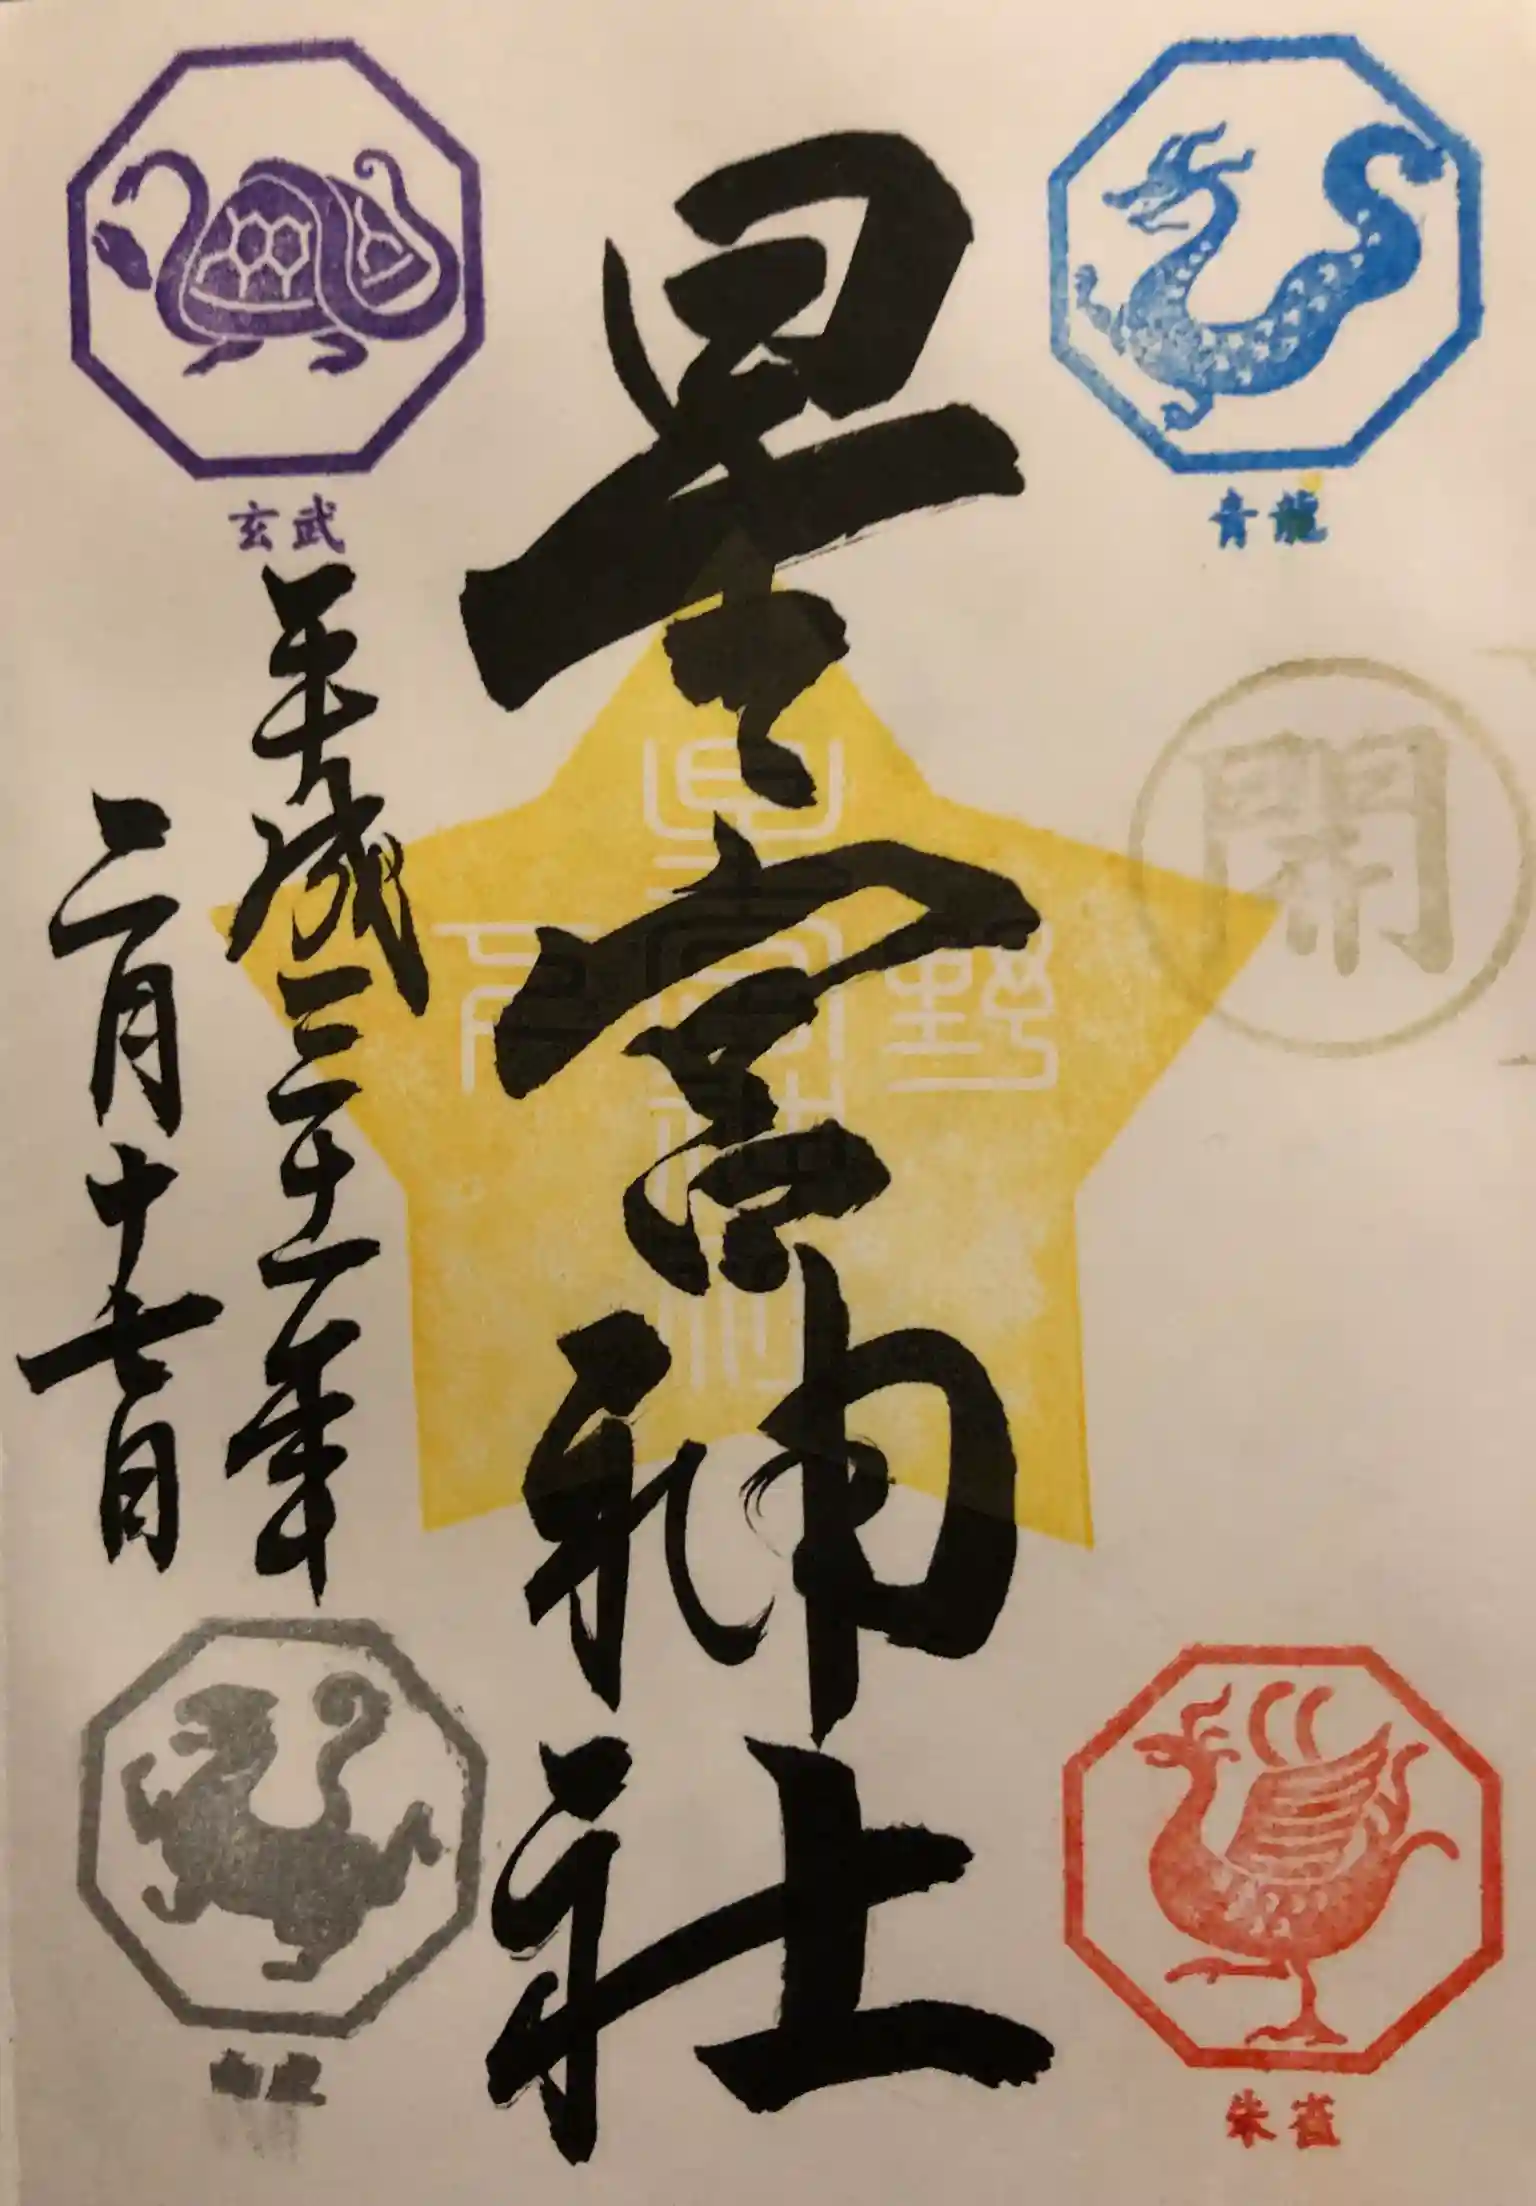 青龍
朱雀
星宮神社
星宮神社
下野
玄武
平成三十一年
二月十七日